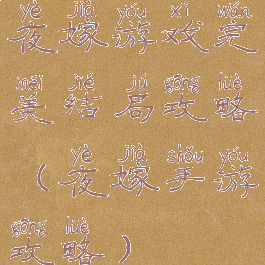 yè jià yóu xì wán
夜嫁游戏完
měi jié jú gōng lüè
美结局攻略
yè jià shǒu yóu
(夜嫁手游
gōng lüè
攻略)